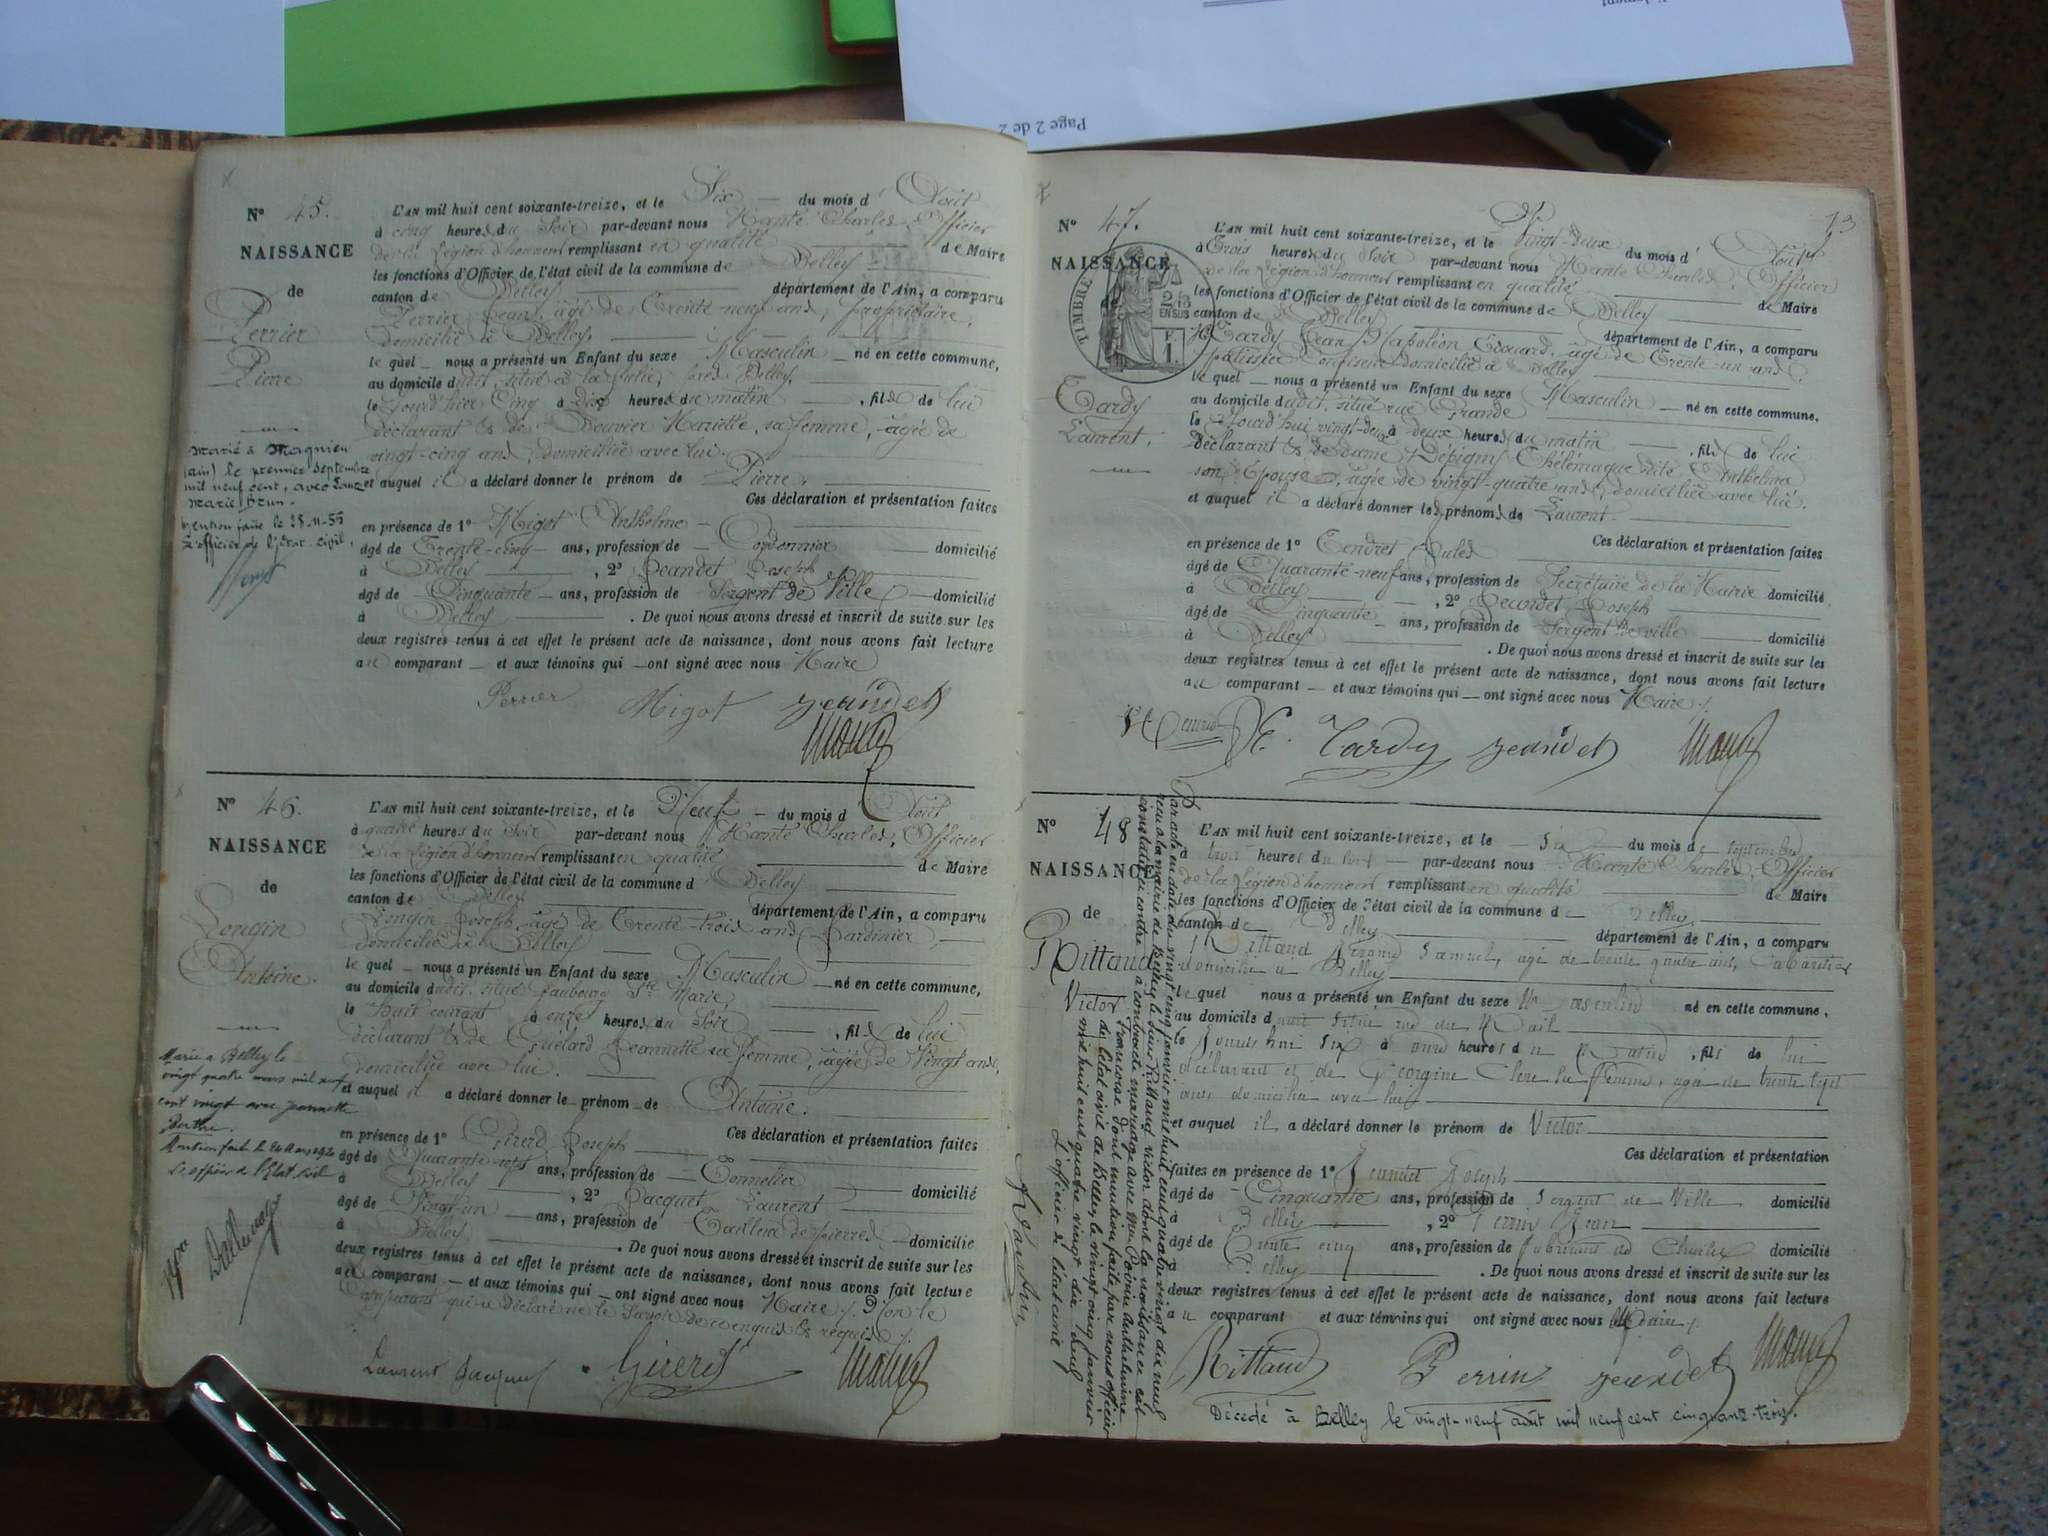 Page 2 de 2
N° 45.
NAISSANCE
de
Perrier
Pierre
L'AN mil huit cent soixante-treize, et le Six — du mois d'Août
à cinq heures du Soir par-devant nous Charles Officier
de la Légion d'honneur remplissant en qualité de Maire
les fonctions d'Officier de l'état civil de la commune de Belley
canton de Belley département de l'Ain, a comparu
Perrier Jean, âgé de Trente-neuf ans, propriétaire,
domicilié à Belley.
le quel — nous a présenté un Enfant du sexe Masculin — né en cette commune,
au domicile dudit, situé à Belley.
le jourd'hier Cinq à Dix heures du matin, fils de lui
déclarant & de Bouvier Mariette, sa femme, âgée de
vingt-cinq ans, domiciliée avec lui.
et auquel il a déclaré donner le prénom de Pierre.
Ces déclaration et présentation faites
en présence de 1° Migot Anthelme
âgé de Trente-cinq ans, profession de Cordonnier domicilié
à Belley, 2° Jeandet Joseph
âgé de Cinquante ans, profession de Sergent de Ville domicilié
à Belley. De quoi nous avons dressé et inscrit de suite sur les
deux registres tenus à cet effet le présent acte de naissance, dont nous avons fait lecture
au comparant — et aux témoins qui — ont signé avec nous Maire
Perrier Migot Jeandet
Marié à Magnieu
(ain) le premier Septembre
mil neuf cent, avec
Marie Brun.
Mention faite le 28-11-55
L'officier de l'Etat civil,
N° 46.
NAISSANCE
de
Longin
Antoine.
L'AN mil huit cent soixante-treize, et le Neuf — du mois d'Août
à quatre heures du Soir par-devant nous Charles, Officier
de la Légion d'honneur remplissant en qualité de Maire
les fonctions d'Officier de l'état civil de la commune d Belley
canton de Belley département de l'Ain, a comparu
Longin Joseph, âgé de Trente-trois ans Jardinier,
domicilié à Belley
le quel — nous a présenté un Enfant du sexe Masculin — né en cette commune,
au domicile dudit, situé faubourg Ste Marie,
le Huit courant à onze heures du Soir, fils de lui
déclarant & de Jeannette sa femme, âgée de Vingt ans,
domiciliée avec lui.
et auquel il a déclaré donner le prénom de Antoine.
Ces déclaration et présentation faites
en présence de 1° Girerd Joseph
âgé de Quarante-sept ans, profession de Tonnelier domicilié
à Belley, 2° Jacquet Laurent
âgé de Vingt-un ans, profession de Tailleur de pierres domicilié
à Belley. De quoi nous avons dressé et inscrit de suite sur les
deux registres tenus à cet effet le présent acte de naissance, dont nous avons fait lecture
au comparant — et aux témoins qui — ont signé avec nous Maire. Non le
comparant qui a déclaré ne le savoir de ce enquis & requis.
Laurent Jacquet Girerd
Marié à Belley le
vingt quatre mars mil neuf
cent vingt avec Jeannette
Berthe.
Mention faite le 24 Mars 1920
Le officier de l'Etat civil
N° 47.
73
NAISSANCE
TIMBRE
2/10
EN SUS
F.
1.
Tardy
Laurent.
L'AN mil huit cent soixante-treize, et le Vingt-deux du mois d'Août
à Trois heures du Soir par-devant nous Charles, Officier
de la Légion d'honneur remplissant en qualité de Maire
les fonctions d'Officier de l'état civil de la commune de Belley
canton de Belley département de l'Ain, a comparu
Tardy Jean Napoléon Edouard, âgé de Trente-un ans,
pâtissier Confiseur domicilié à Belley
le quel — nous a présenté un Enfant du sexe Masculin — né en cette commune,
au domicile dudit, situé rue Grande
le jourd'hui vingt-deux à deux heures du matin, fils de lui
déclarant & de dame Dépigny Thélémaque dite Anthelma
son Epouse, âgée de vingt-quatre ans, domiciliée avec lui.
et auquel il a déclaré donner le prénom de Laurent.
Ces déclaration et présentation faites
en présence de 1° Tendret Jules
âgé de Quarante-neuf ans, profession de Secrétaire de la Mairie domicilié
à Belley, 2° Jeandet Joseph
âgé de Cinquante ans, profession de Sergent de ville domicilié
à Belley. De quoi nous avons dressé et inscrit de suite sur les
deux registres tenus à cet effet le présent acte de naissance, dont nous avons fait lecture
au comparant — et aux témoins qui — ont signé avec nous Maire
E. Tardy Jeandet
N° 48
NAISSANCE
de
Rittaud
Victor
L'AN mil huit cent soixante-treize, et le Six du mois de Septembre
à trois heures du soir par-devant nous Charles, Officier
de la Légion d'honneur remplissant en qualité de Maire
les fonctions d'Officier de l'état civil de la commune de Belley
canton de Belley département de l'Ain, a comparu
Rittaud Armand Samuel, âgé de trente quatre ans, Cabaretier
domicilié à Belley
le quel nous a présenté un Enfant du sexe Masculin né en cette commune,
au domicile dudit situé rue du Mail
le Jourd'hui Six à onze heures du Matin, fils de lui
déclarant et de Clere sa femme, âgée de trente sept
ans domiciliée avec lui
et auquel il a déclaré donner le prénom de Victor
Ces déclaration et présentation
faites en présence de 1° Jeandet Joseph
âgé de Cinquante ans, profession de Sergent de Ville domicilié
à Belley, 2° Perrin Jean
âgé de Trente cinq ans, profession de fabricant de Chaises domicilié
à Belley. De quoi nous avons dressé et inscrit de suite sur les
deux registres tenus à cet effet le présent acte de naissance, dont nous avons fait lecture
au comparant et aux témoins qui ont signé avec nous Maire
Rittaud Perrin Jeandet
Décédé à Belley le vingt-neuf août mil neuf cent cinquante-trois.
Par acte en date du vingt cinq janvier mil huit cent quatre vingt dix neuf
reçu à la mairie de Belley le sieur Rittaud Victor dont la naissance est
constatée ci contre a contracté mariage avec Mlle Anthelmine
Françoise dont mention faite par nous officier
de l'état civil de Belley le vingt cinq janvier
mil huit cent quatre vingt dix neuf
L'officier de l'état civil